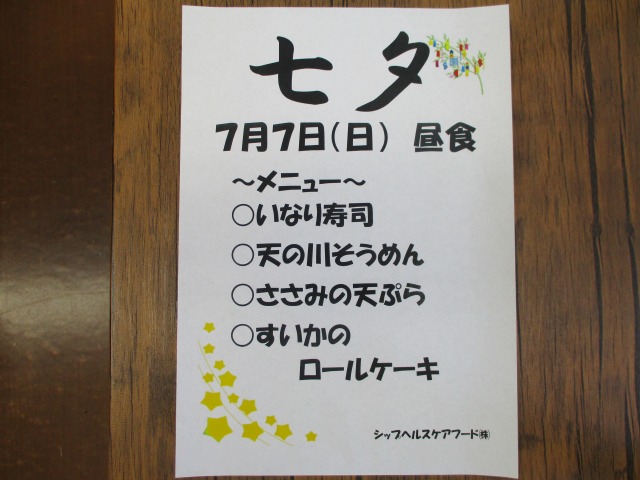 七夕
7月7日(日) 昼食
～メニュー～
○いなり寿司
○天の川そうめん
○ささみの天ぷら
○すいかの
ロールケーキ
シップヘルスケアフード㈱